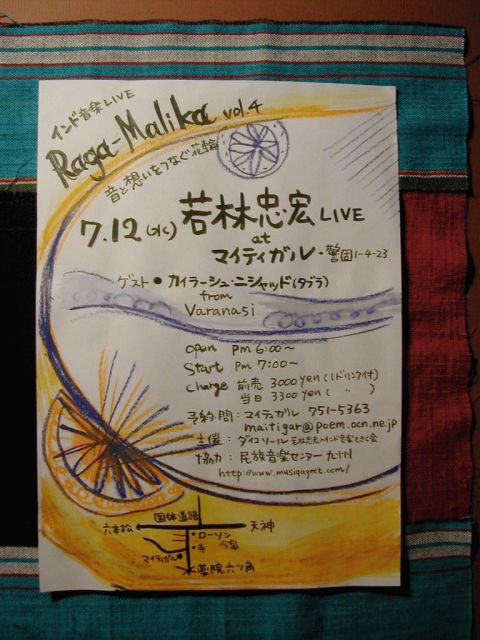 インド音楽LIVE
Raga-Malika vol.4
音と想いをつなぐ花輪
7.12(水) 若林忠宏 LIVE
at
マイティガル・警固1-4-23
ゲスト●カイラーシュ・ニシャッド(タブラ)
from
Varanasi
open pm 6:00~
Start pm 7:00~
charge 前売 3000yen(1ドリンク付)
当日 3300yen( 〃 )
予約・問:マイティガル 751-5363
maitigar@poem.ocn.ne.jp
主催:ダイコソール 若林忠宏インド音楽をきく会
協力:民族音楽センター九州
http://www.musiqageet.com/
国体道路
六本松
天神
ローソン
寺 今泉
マイティガル
薬院六ツ角